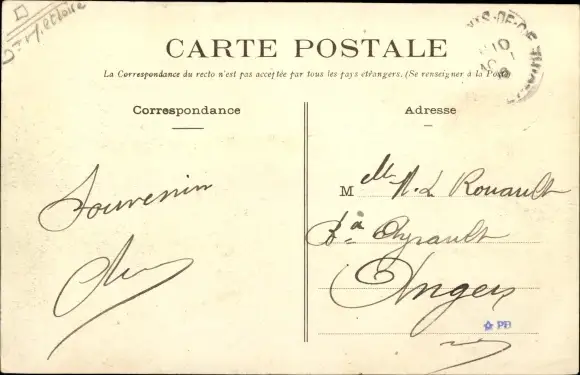 CARTE POSTALE
La Correspondance du recto n'est pas acceptée par tous les pays étrangers. (Se renseigner à la Poste)
Correspondance
Adresse
Souvenir
M elle N. L Rouault
Bd Ayrault
Angers
PB